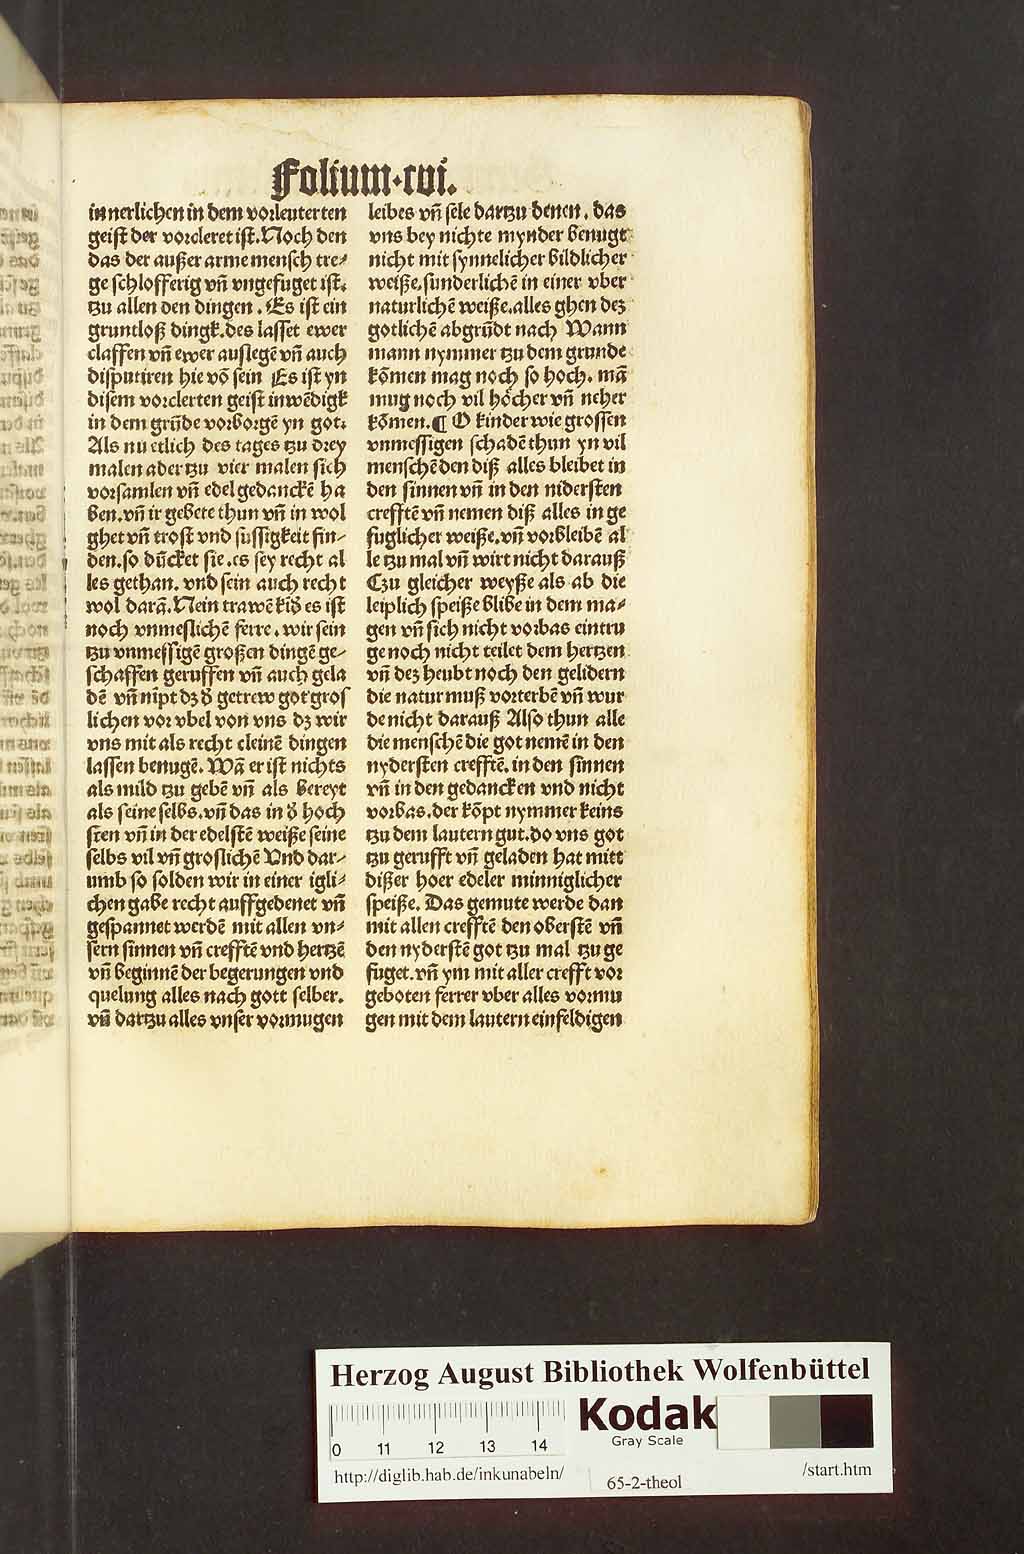 Folium·cvi.
innerlichen in dem vorleuterten
geist der vorcleret ist. Noch den
das der außer arme mensch tre⸗
ge schlofferig vñ vngefuget ist.
tzu allen den dingen. Es ist ein
gruntloß dingk. des lasset ewer
claffen vñ ewer auslegē vñ auch
disputiren hie vō sein Es ist yn
disem vorclerten geist inwēdigk
in dem grūde vorborgē yn got.
Als nu etlich des tages tzu drey
malen ader tzu vier malen sich
vorsamlen vñ edel gedanckē ha
ben. vñ ir gebete thun vñ in wol
ghet vñ trost vnd sussigkeit fin⸗
den. so dūcket sie. es sey recht al
les gethan. vnd sein auch recht
wol darā. Nein trawē kīd̕ es ist
noch vnmeslichē ferre. wir sein
tzu vnmessigē großen dingē ge⸗
schaffen geruffen vñ auch gela
dē vñ nīpt dz d̕ getrew got gros
lichen vor vbel von vns dz wir
vns mit als recht cleinē dingen
lassen benugē. Wā er ist nichts
als mild tzu gebē vñ als bereyt
als seine selbs. vñ das in d̕ hoch
sten vñ in der edelstē weiße seine
selbs vil vñ groslichē Vnd dar⸗
umb so solden wir in einer igli⸗
chen gabe recht auffgedenet vñ
gespannet werdē mit allen vn⸗
sern sinnen vñ crefftē vnd hertzē
vñ beginnē der begerungen vnd
quelung alles nach gott selber.
vñ dartzu alles vnser vormugen
leibes vñ sele dartzu denen. das
vns bey nichte mynder benugt
nicht mit synnelicher bildlicher
weiße. sunderlichē in einer vber
naturlichē weiße. alles ghen dez
gotlichē abgrūdt nach Wann
mann nymmer tzu dem grunde
kōmen mag noch so hoch. mā
mug noch vil höcher vñ neher
kōmen. ¶ O kinder wie grossen
vnmessigen schadē thun yn vil
menschē den diß alles bleibet in
den sinnen vñ in den nidersten
crefftē vñ nemen diß alles in ge
fuglicher weiße. vñ vorbleibē al
le tzu mal vñ wirt nicht darauß
Czu gleicher weyße als ab die
leiplich speiße blibe in dem ma⸗
gen vñ sich nicht vorbas eintru
ge noch nicht teilet dem hertzen
vñ dez heubt noch den gelidern
die natur muß vorterbē vñ wur
de nicht darauß Also thun alle
die menschē die got nemē in den
nydersten crefftē. in den sinnen
vñ in den gedancken vnd nicht
vorbas. der kōpt nymmer keins
tzu dem lautern gut. do vns got
tzu gerufft vñ geladen hat mitt
dißer hoer edeler minniglicher
speiße. Das gemute werde dan
mit allen crefftē den oberstē vñ
den nyderstē got tzu mal tzu ge
fuget. vñ ym mit aller crefft vor
geboten ferrer vber alles vormu
gen mit dem lautern einfeldigen
Herzog August Bibliothek Wolfenbüttel
Kodak
Gray Scale
0 11 12 13 14
http://diglib.hab.de/inkunabeln/
65-2-theol
/start.htm